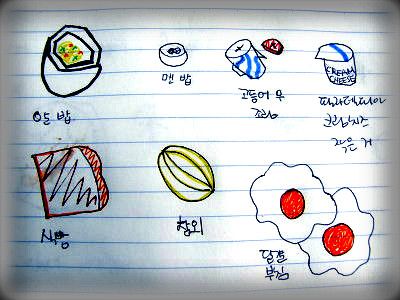 CREAM
CHEESE
알 밥
맨 밥
고등어 무
조림
크림치즈
작은 거
식빵
참외
달걀
부침